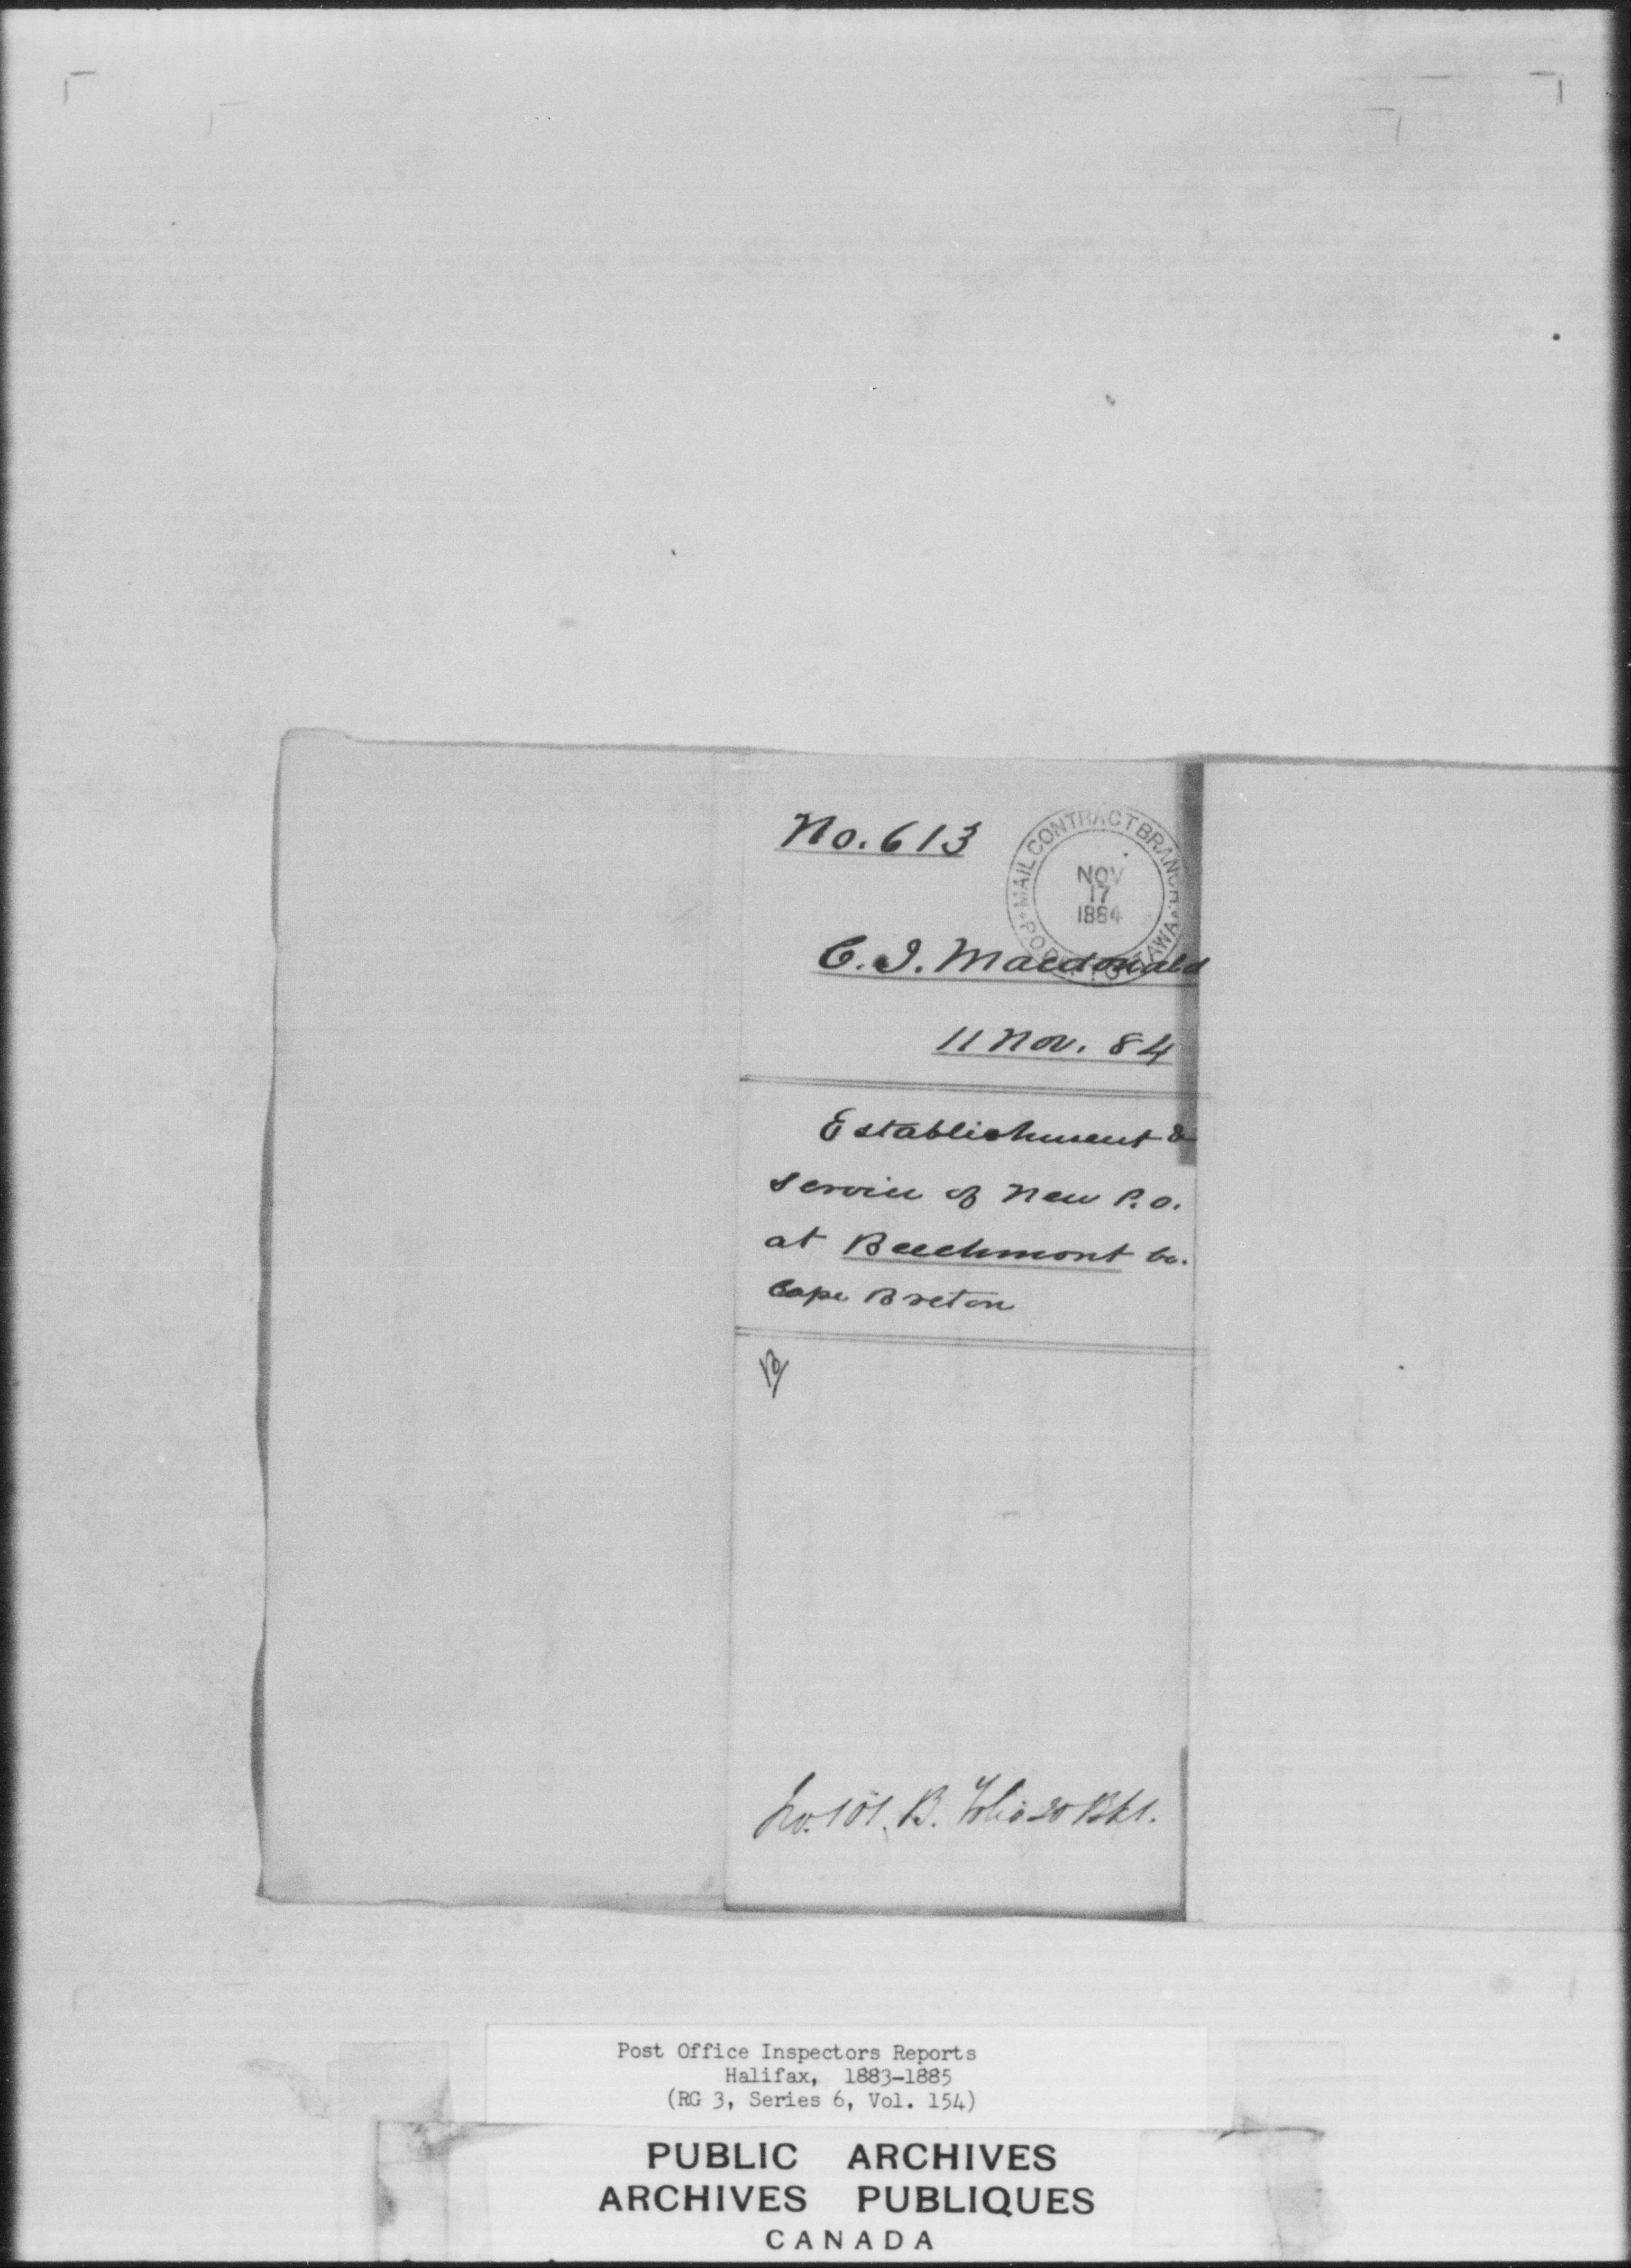 No. 613
MAIL CONTRACT BRANCH.
NOV
17
1884
P.O.D. OTTAWA
C. J. Macdonald
11 Nov. 84
Establishment &
service of New P.O.
at Beechmont Co.
Cape Breton
No. 101. B. Folio 20 Bk 1.
Post Office Inspectors Reports
Halifax, 1883-1885
(RG 3, Series 6, Vol. 154)
PUBLIC ARCHIVES
ARCHIVES PUBLIQUES
CANADA